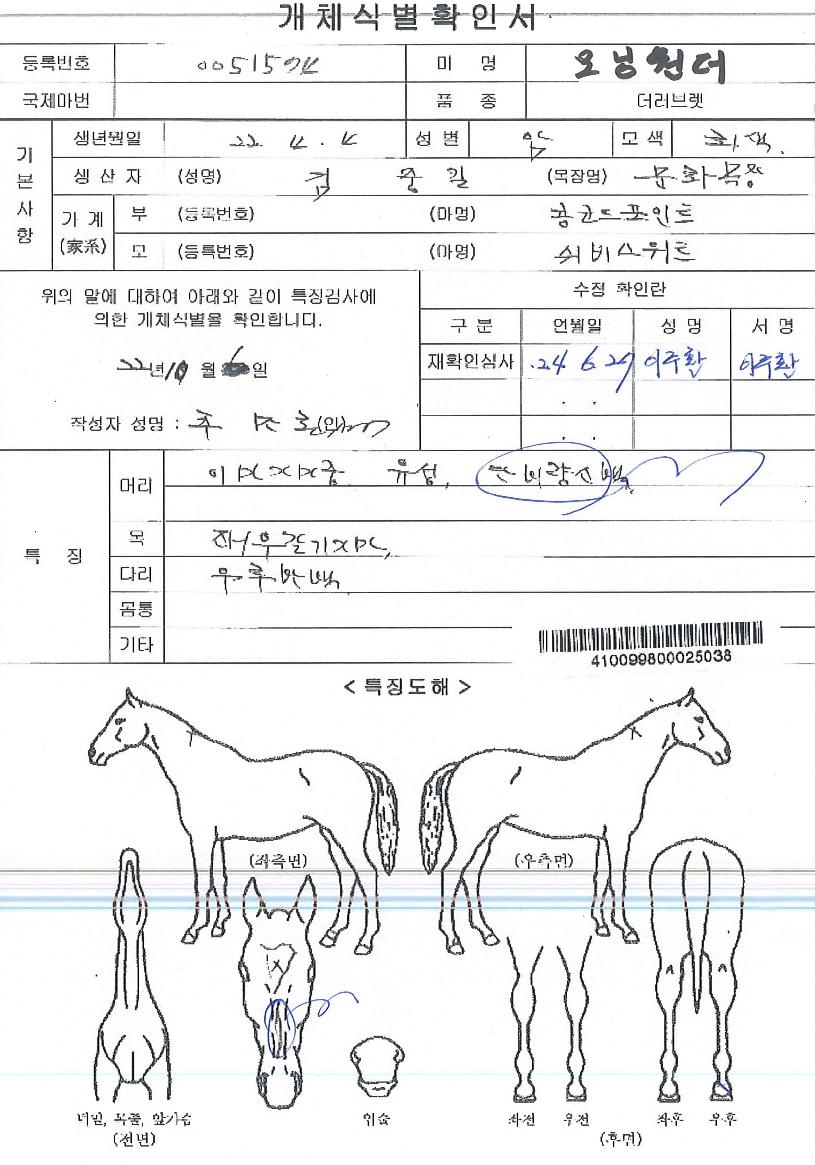 개체식별확인서
등록번호 0051574 마 명 오닝원더
국제마번 품 종 더러브렛
기본사항
생년월일 22. 4. 4 성별 암 모색 회색.
생산자 (성명) 김 중길 (목장명) 문화목장
가계 (家系) 부 (등록번호) (마명) 콩코드포인트
모 (등록번호) (마명) 쉬비스위트
위의 말에 대하여 아래와 같이 특징검사에
의한 개체식별을 확인합니다.
22년 10 월 6일
작성자 성명 :
수정 확인란
구 분 연월일 성 명 서 명
재확인심사 .24 6.27 이주환 이주환
특 징
머리 유성,
목
다리 우후반백
몸통
기타
410099800025038
< 특징도해 >
(좌측면) (우측면)
턱밑, 목줄, 앞가슴
(전면)
입술
좌전 우전 좌후 우후
(후면)